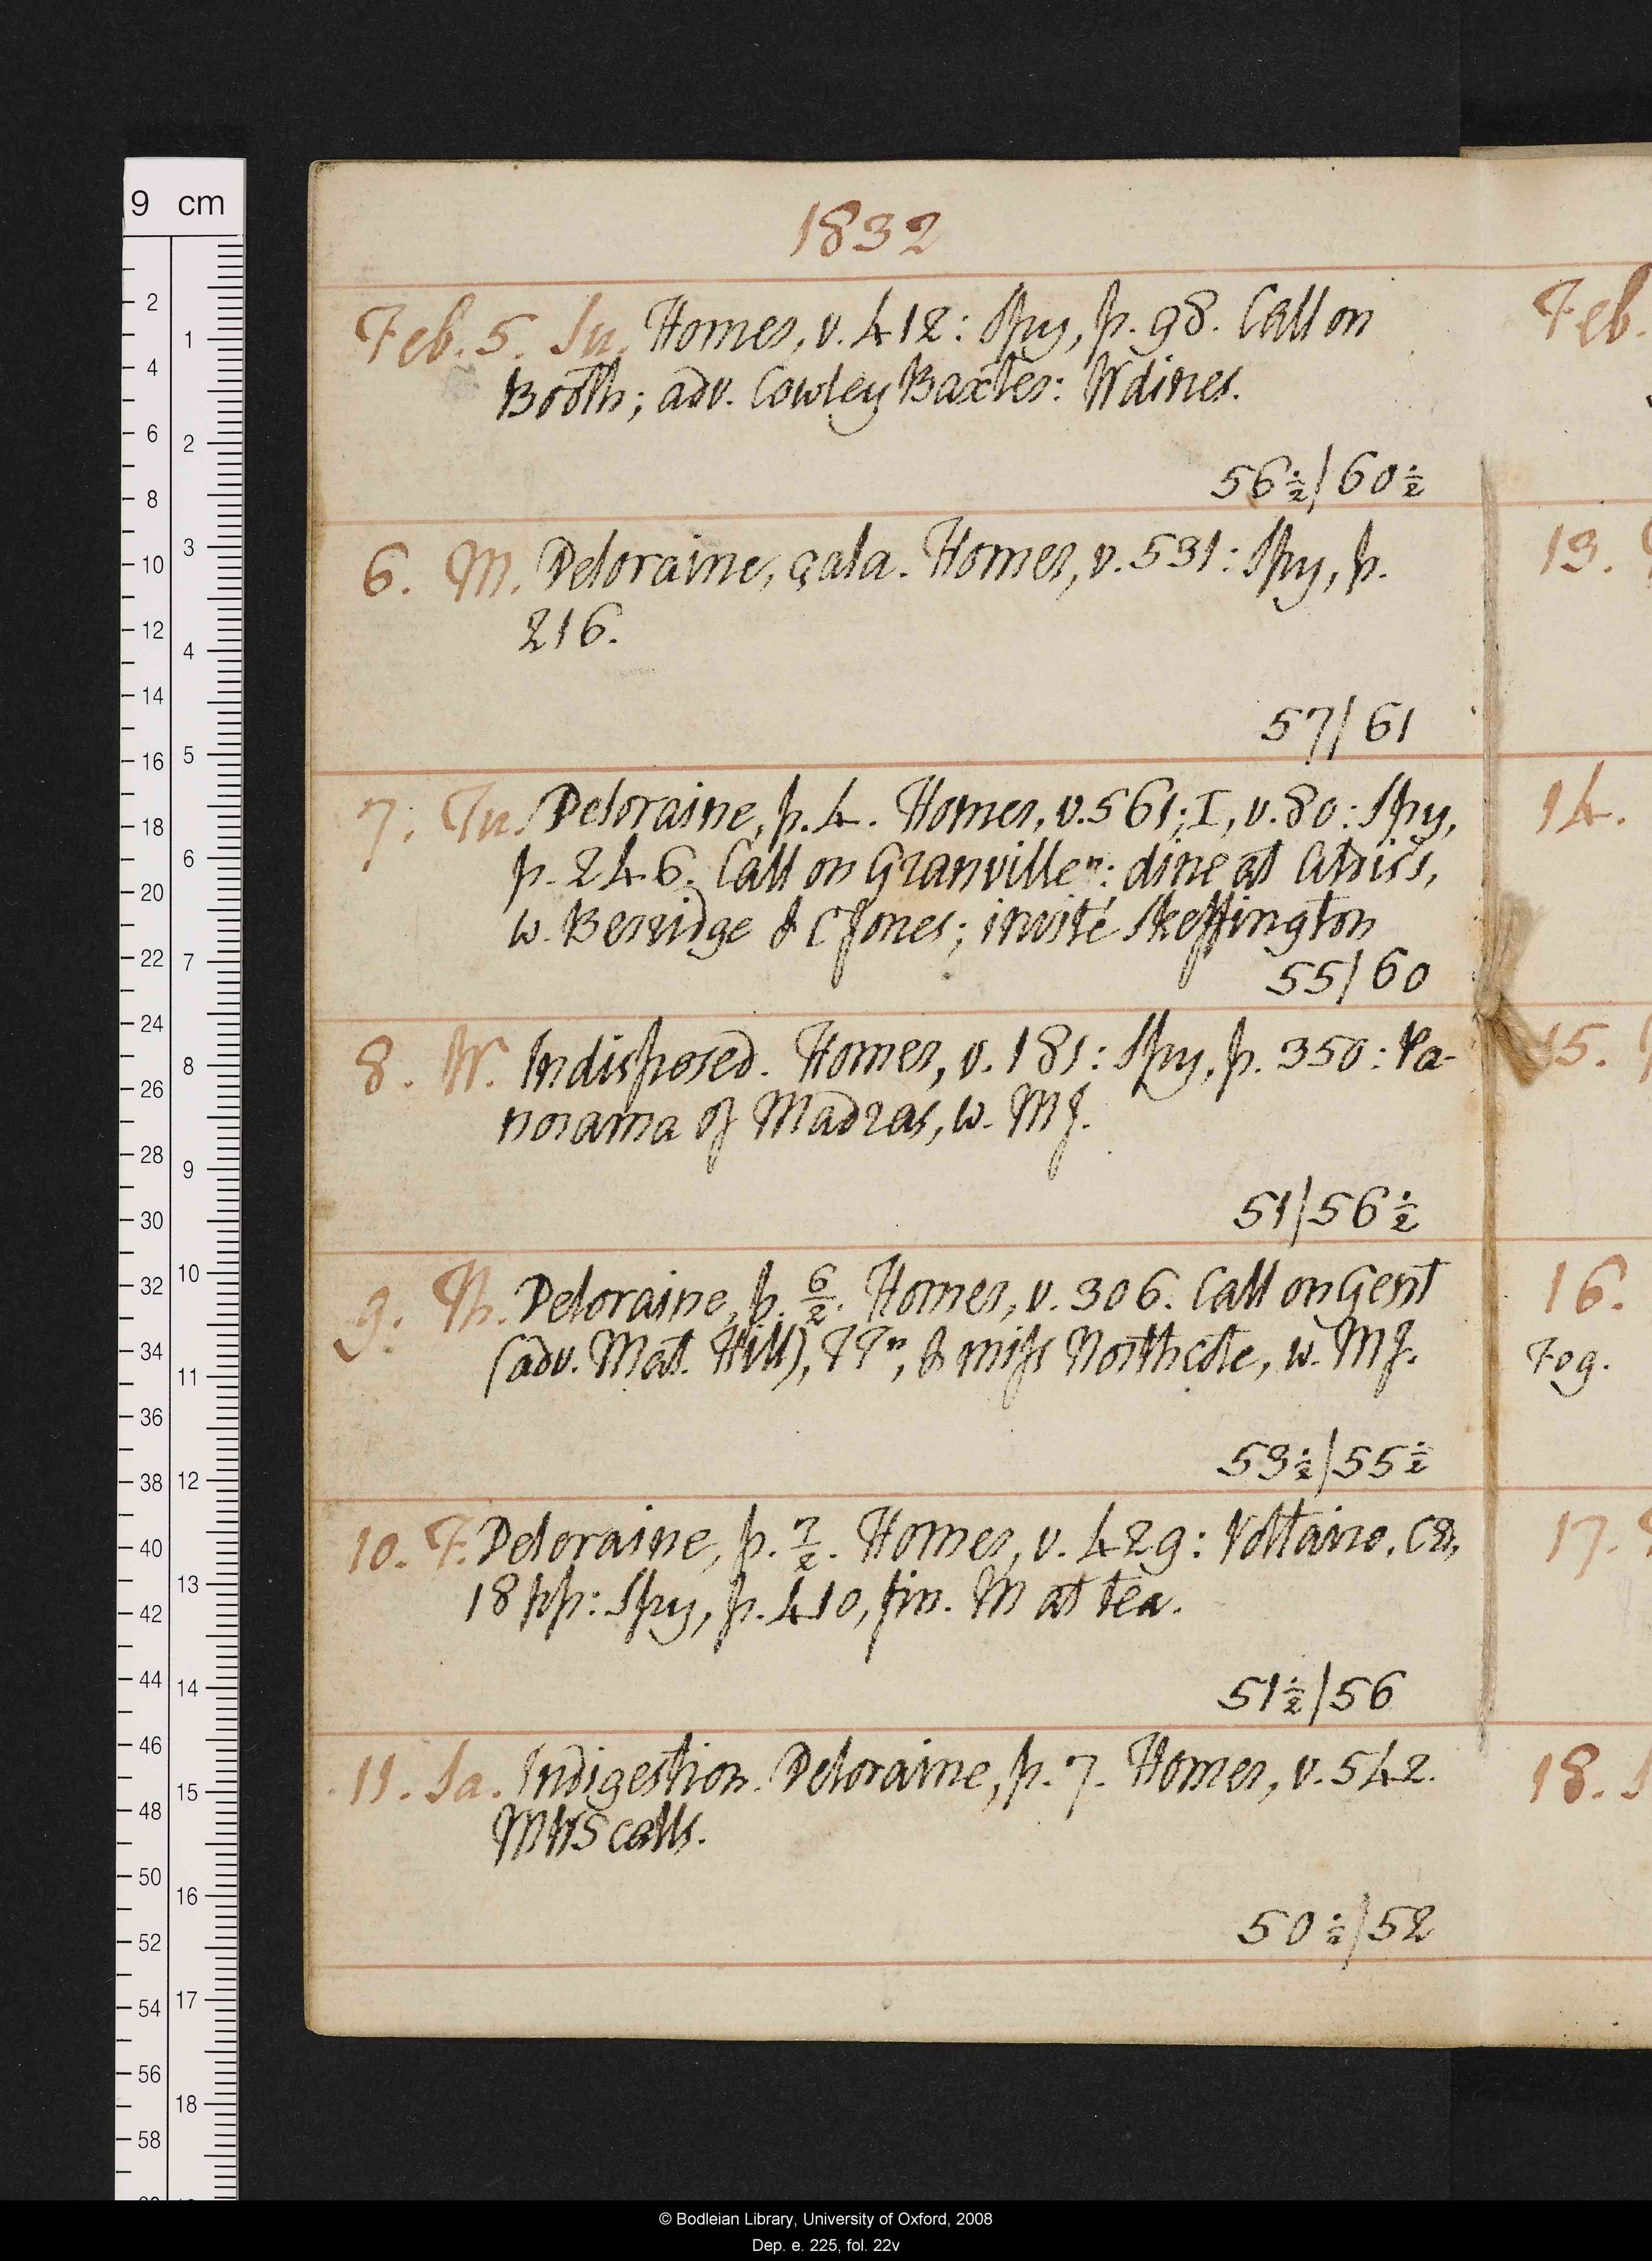 9 cm
1832
Feb. 5. Su. Homer, v. 412: Spy, p. 98. Call on
Booth; adv. Cowley Baxter: W dines.
56½/60½
6. M. Deloraine, çala. Homer, v. 531: Spy, p.
216.
57/61
7. Tu. Deloraine, p. 4. Homer, v. 561; I, v. 80: Spy,
p. 246. Call on Granville n: dine at
w. Berridge & CJones; invité Skeffington
55/60
8. W. Indisposed. Homer, v. 181: Spy, p. 350: Pa-
norama of Madras, w. MJ.
51/56½
9. Th. Deloraine, p. 6/2. Homer, v. 306. Call on Gent
(adv. Mat. Hill), TTn, & miss Northcote, w. MJ.
53½/55½
10. F. Deloraine, p. 7/2. Homer, v. 429: Voltaire, ca,
18 pp: Spy, p. 410, fin. M at tea.
51½/56
11. Sa. Indigestion. Deloraine, p. 7. Homer, v. 542.
MWS calls.
50½/52
Feb.
13.
14.
15.
16.
Fog.
17.
18.
© Bodleian Library, University of Oxford, 2008
Dep. e. 225, fol. 22v